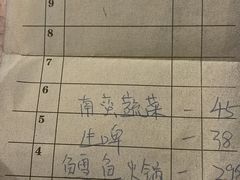 9
8
7
6
南 蔬菜 — 45
5
进啤 — 38
4
鱼火锅 — 29